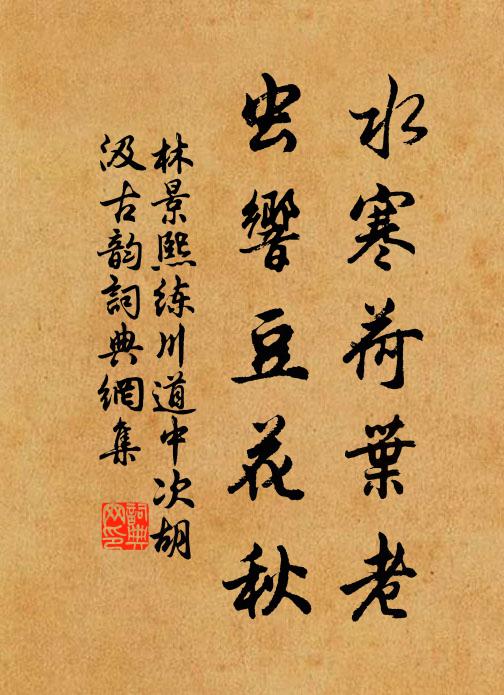 水寒荷葉老
虫響豆花秋
林景熙练川道中次胡
汲古韵詞典網集
詞典网印